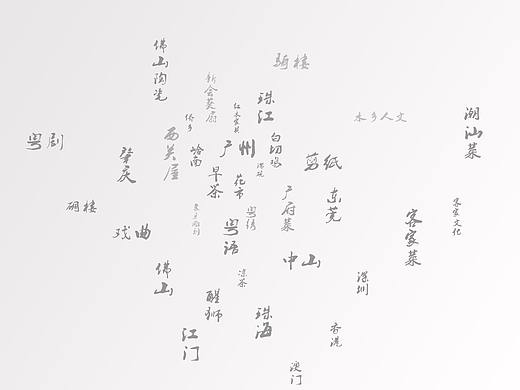 佛山陶瓷
骑楼
新会葵扇
珠江
水乡人文
潮汕菜
侨乡
粤剧
西关屋
岭南
广州
白切鸡
剪纸
肇庆
早茶
花市
碉楼
戏曲
粤语
粤绣
广府菜
东莞
客家菜
客家文化
中山
佛山
凉茶
深圳
醒狮
珠海
江门
香港
澳门